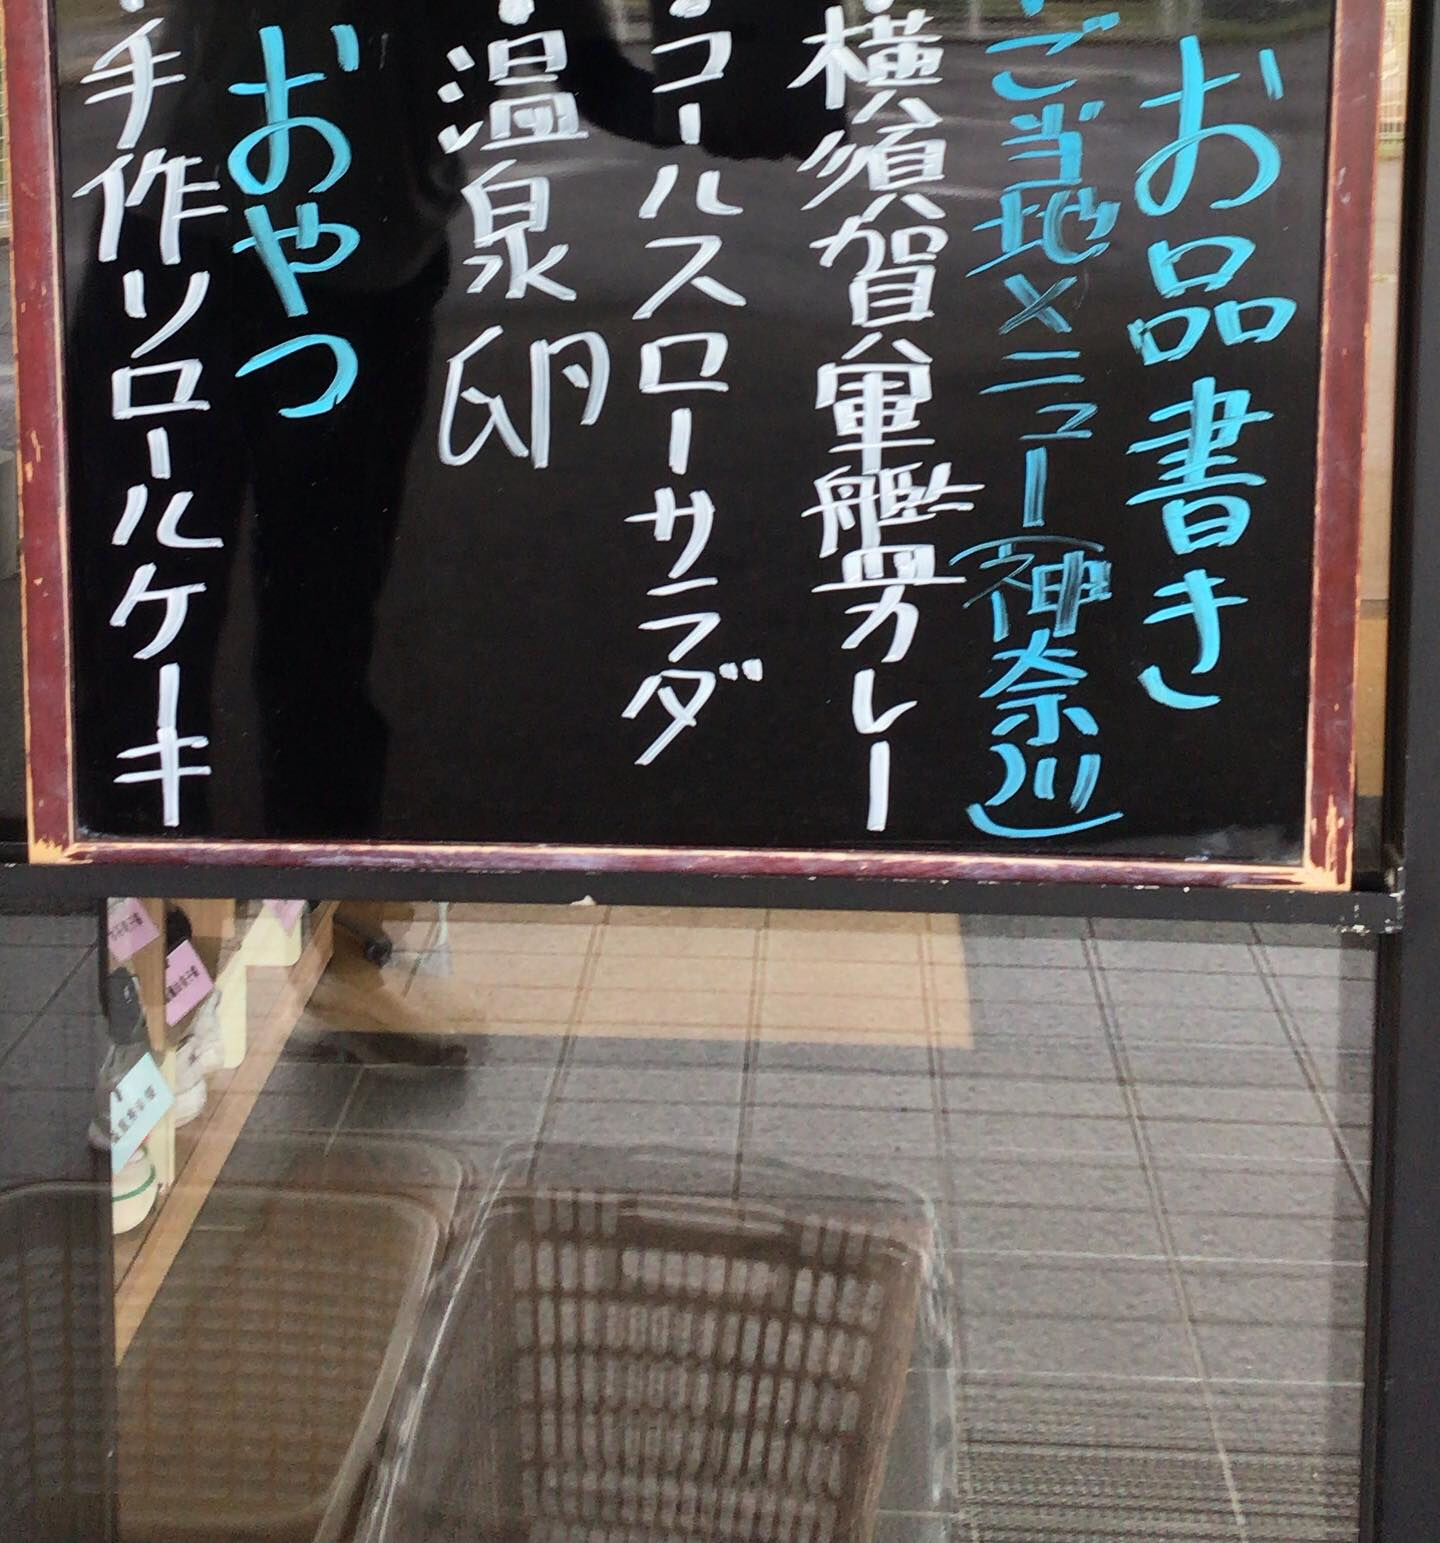 お品書き
・ご当地メニュー(神奈川)
・横須賀軍艦カレー
・コールスローサラダ
・温泉卵
おやつ
・手作リロールケーキ